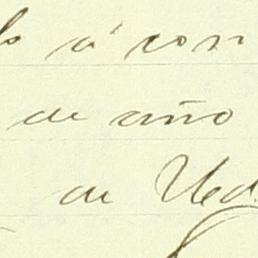 á con
de año
de Ud.